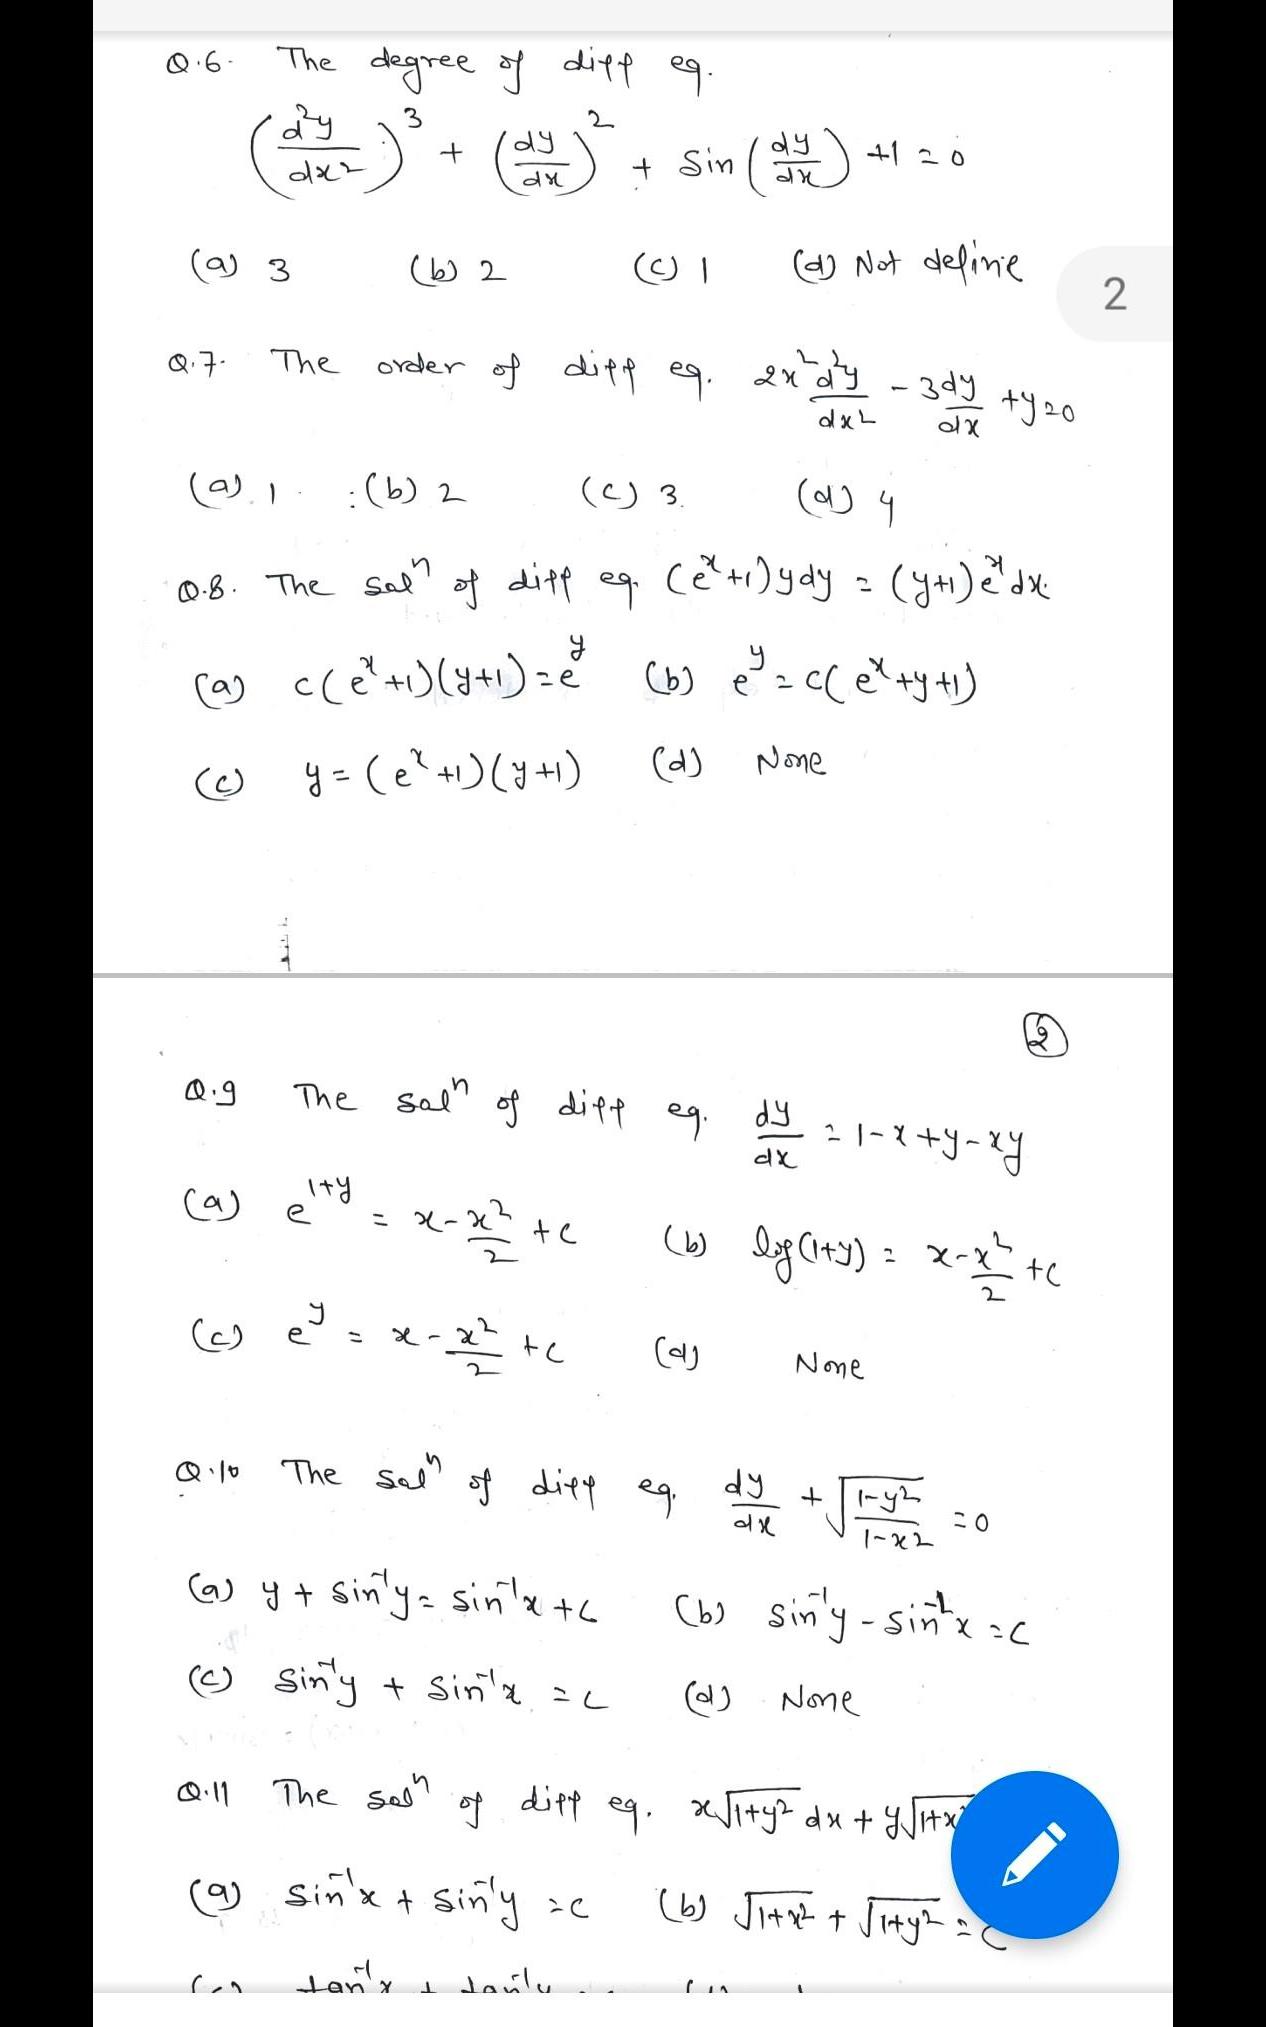 Q.6. The degree of diff eq.
(d²y/dx²)³ + (dy/dx)² + Sin (dy/dx) +1 = 0
(a) 3 (b) 2 (c) 1 (d) Not define
2
Q.7. The order of diff eq. 2x² d²y/dx² - 3dy/dx + y = 0
(a) 1 (b) 2 (c) 3 (d) 4
Q.8. The solⁿ of diff eq. (eˣ+1) y dy = (y+1) eˣ dx
(a) c(eˣ+1)(y+1) = eʸ (b) eʸ = c(eˣ+y+1)
(c) y = (eˣ+1)(y+1) (d) None
2
Q.9 The solⁿ of diff eq. dy/dx = 1-x+y-xy
(a) e¹⁺ʸ = x - x²/2 + c (b) log(1+y) = x - x²/2 + c
(c) eʸ = x - x²/2 + c (d) None
Q.10 The solⁿ of diff eq. dy/dx + √(1-y²/1-x²) = 0
(a) y + sin⁻¹y = sin⁻¹x + c (b) sin⁻¹y - sin⁻¹x = c
(c) sin⁻¹y + sin⁻¹x = c (d) None
Q.11 The solⁿ of diff eq. x√1+y² dx + y√1+x
(a) sin⁻¹x + sin⁻¹y = c (b) √1+x² + √1+y² = c
tan⁻¹x + tan⁻¹y